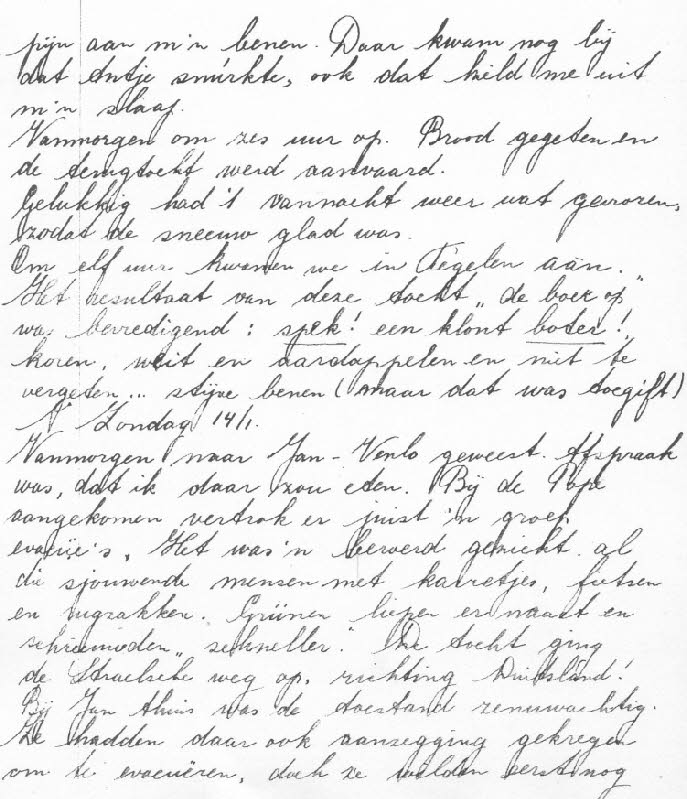 pijn aan m'n benen. Daar kwam nog bij
dat Antje snurkte, ook dat hield me uit
m'n slaap.
Vanmorgen om zes uur op. Brood gegeten en
de terugtocht werd aanvaard.
Gelukkig had 't vannacht weer wat gevroren,
zodat de sneeuw glad was.
Om elf uur kwamen we in Tegelen aan.
Het resultaat van deze tocht „de boer op"
was bevredigend: spek! een klont boter!,
koren, weit en aardappelen en niet te
vergeten... stijve benen (maar dat was toegift)
Zondag 14/1.
Vanmorgen naar Jan - Venlo geweest. Afspraak
was, dat ik daar zou eten. Bij de Pope
aangekomen vertrok er juist 'n groep
evacué's. Het was 'n beroerd gezicht al
die sjouwende mensen met karretjes, fietsen
en rugzakken. Grünen liepen ernaast en
schreeuwden „schneller". De tocht ging
de Straelsche weg op, richting Duitsland!
Bij Jan thuis was de toestand zenuwachtig.
Ze hadden daar ook aanzegging gekregen
om te evacuëren, doch ze wilden eerst nog